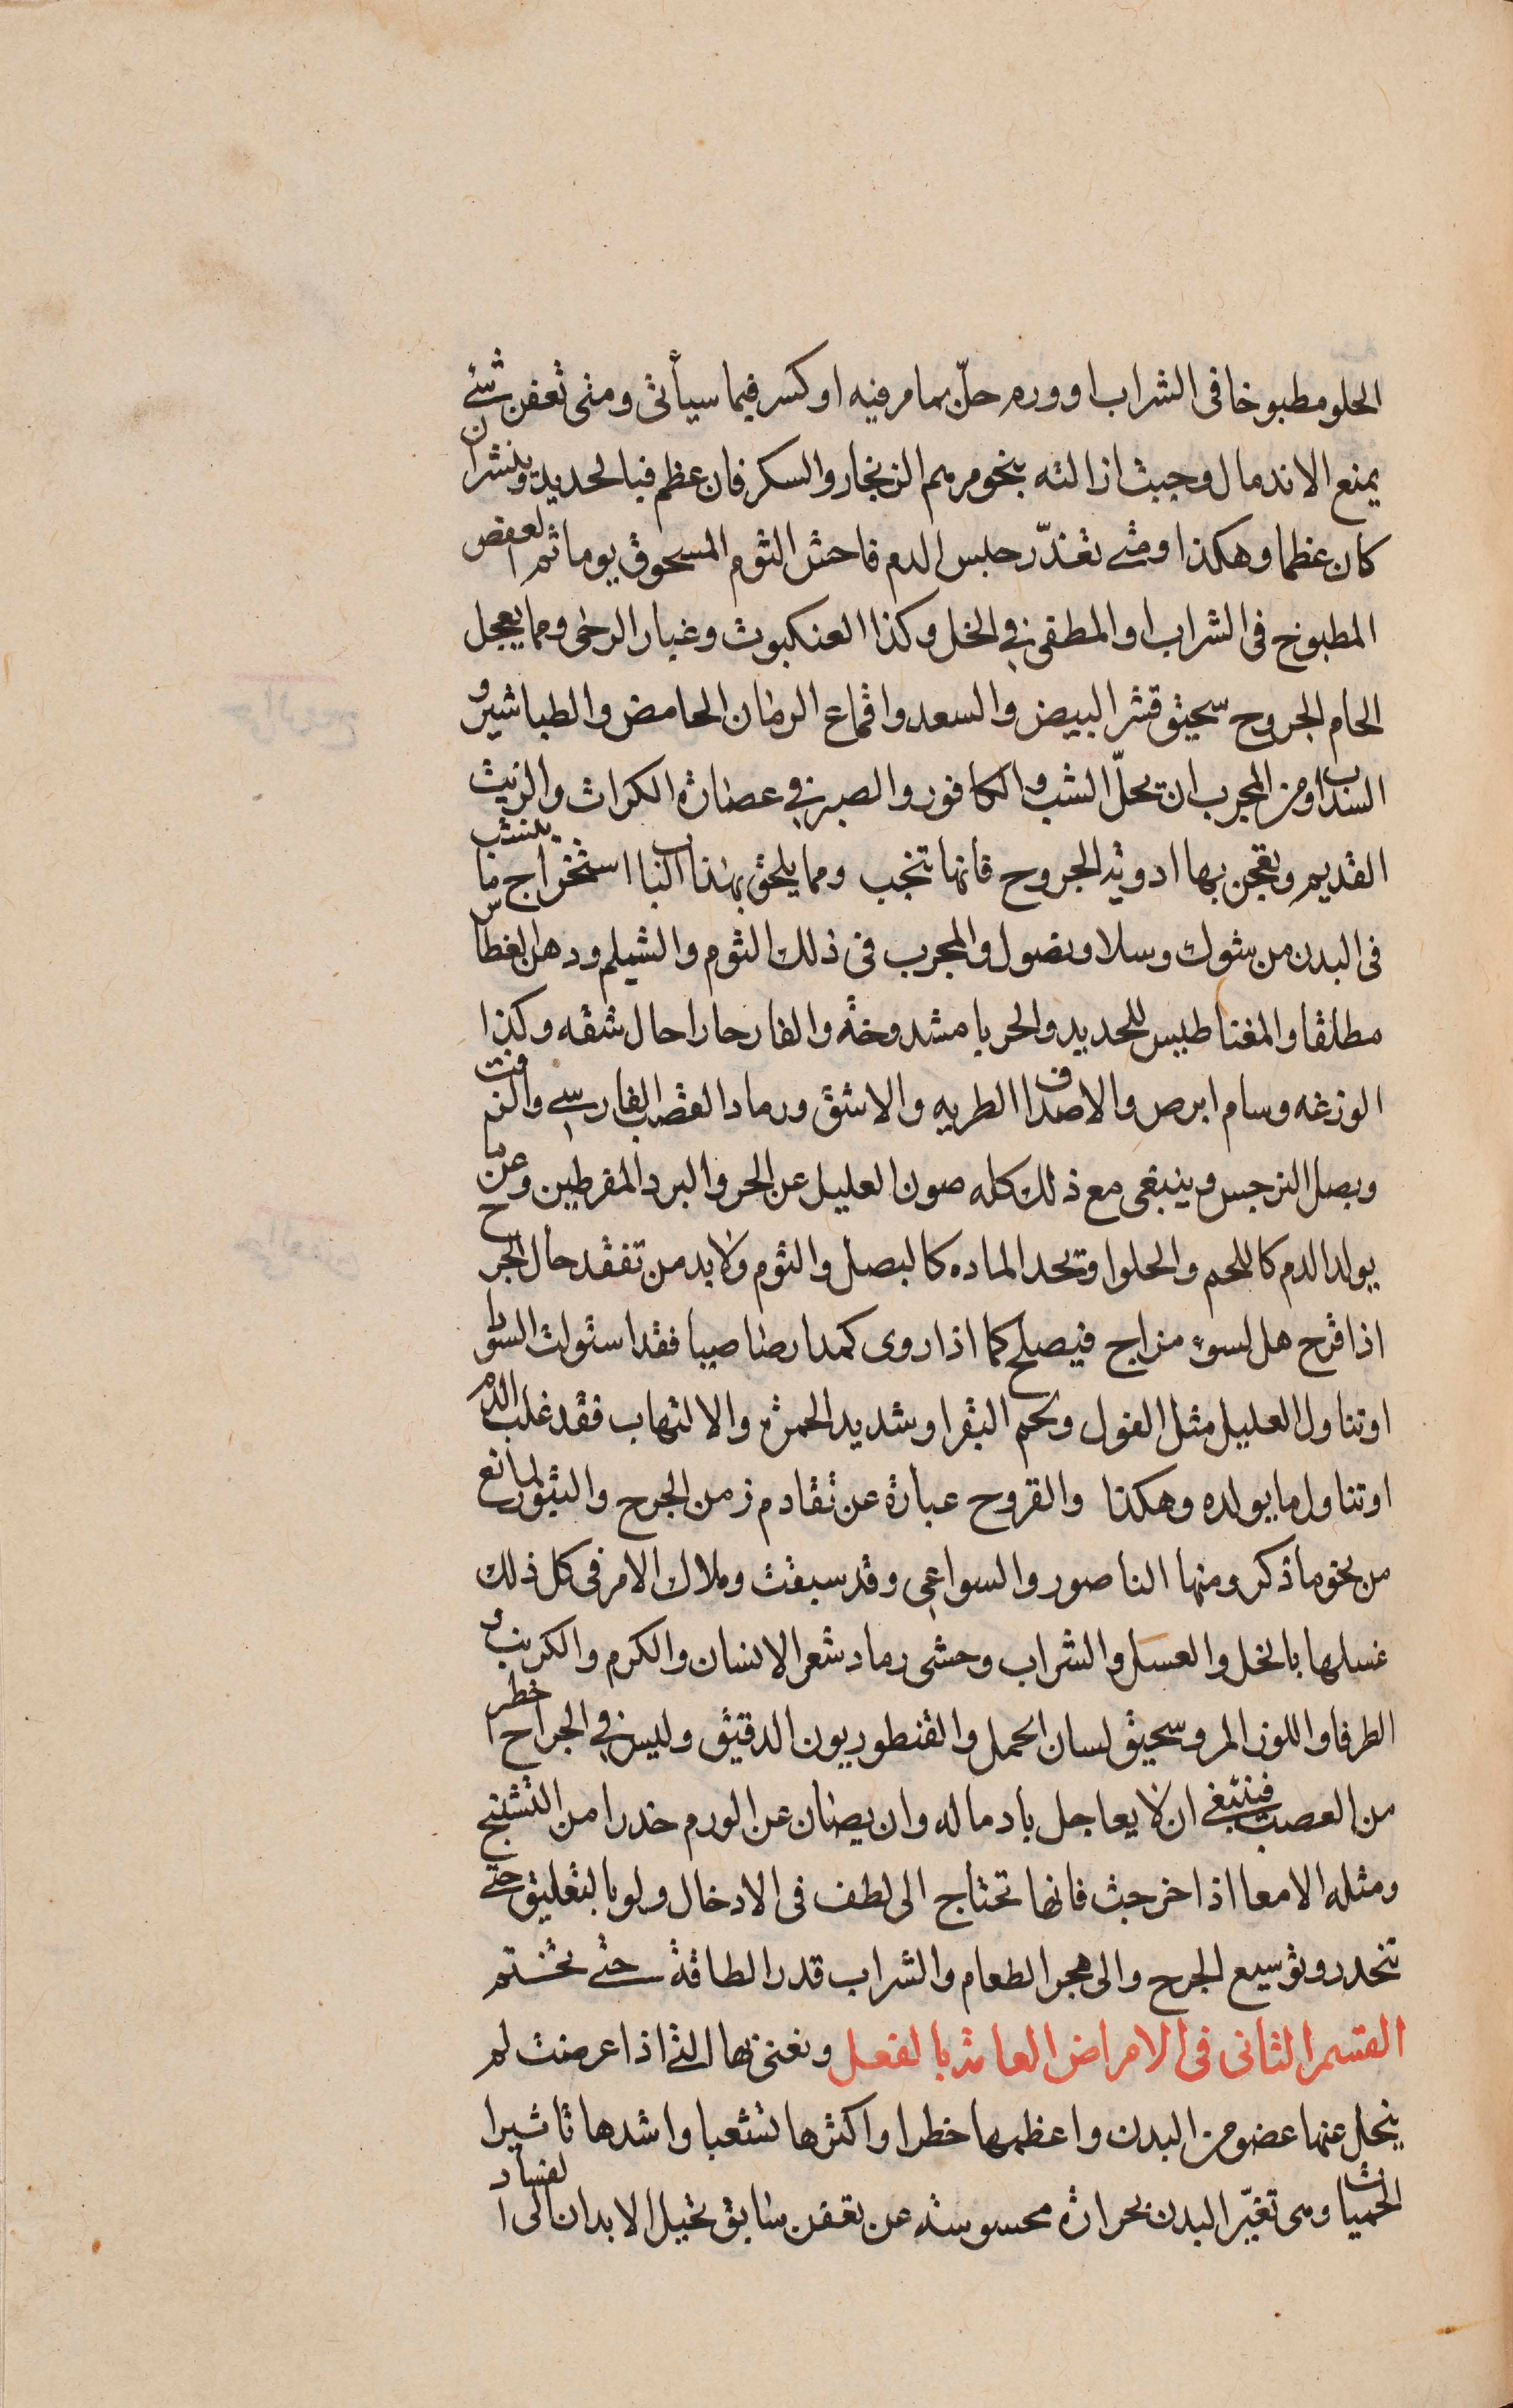 الحلو مطبوخا فى الشراب او ورم حلّ بما مر فيه او كسر فيما سيأتى ومتى تعفن شئ
يمنع الاندمال وجبت ازالته بنحو مرهم الزنجار والسكر فان عظم فبالحديد وينشر ان
كان عظما وهكذا ومتى تعذّر حبس الدم فاحش الثوم المسحوق يوما ثم العفص
المطبوخ فى الشراب او المطفى فى الخل وكذا العنكبوت وغبار الرحى ومما يعجل
الحام الجروح سحيق قشر البيض والسعد واقماع الرمان الحامض والطباشير و
السنداب ومن المجرب ان تحلّ الشب والكافور والصبر فى عصارة الكراث والزيت
القديم وتعجن بها ادوية الجروح فانها تنجب ومما يلحق بهذا الباب استخراج ما ينشب
فى البدن من شوك وسلا ونصول والمجرب فى ذلك الثوم والشيلم ودهن الغطاس
مطلقا والمغناطيس للحديد والحربا مشدوخة والفار حارا حال شقه وكذا
الوزغه وسام ابرص والاصداف الطريه والاشق ورماد القصب الفارسى والزفت
وبصل النرجس وينبغى مع ذلك كله صون العليل عن الحر والبرد المفرطين وعن ما
يولد الدم كاللحم والحلوا وتحد الماده كالبصل والثوم ولا بد من تفقد حال الجرح
اذا قرح هل لسوء مزاج فيصلح كما اذا روى كمدا رصاصيا فقد استولت السودا
او تناول العليل مثل الفول ولحم البقر او شديد الحمرة والالتهاب فقد غلب الدم
او تناول ما يولده وهكذا والقروح عبارة عن تقادم زمن الجرح والبثور لمانع
من نحو ما ذكر ومنها الناصور والسواعى وقد سبقت وملاك الامر فى كل ذلك
غسلها بالخل والعسل والشراب وحشى رماد شعر الانسان والكرم والكرنب و
الطرفا واللوز المر وسحيق لسان الحمل والقنطوريون الدقيق وليس فى الجراح اخطر
من العصب فينبغى ان لا يعاجل بادماله وان يصان عن الورم حذرا من التشنج
ومثله الامعا اذا خرجت فانها تحتاج الى لطف فى الادخال ولو بالتعليق حتى
تنحدر وتوسيع الجرح والى هجر الطعام والشراب قدر الطاقة حتى تختم
القسم الثانى فى الامراض العامة بالفعل ونعنى بها التى اذا عرضت لم
ينحل عنها عضو من البدن واعظمها خطرا واكثرها تشعبا واشدها تاثيرا
الحميات وهى تغيّر البدن بحرارة محسوسة عن تعفن سابق تحيل الابدان الى الفساد